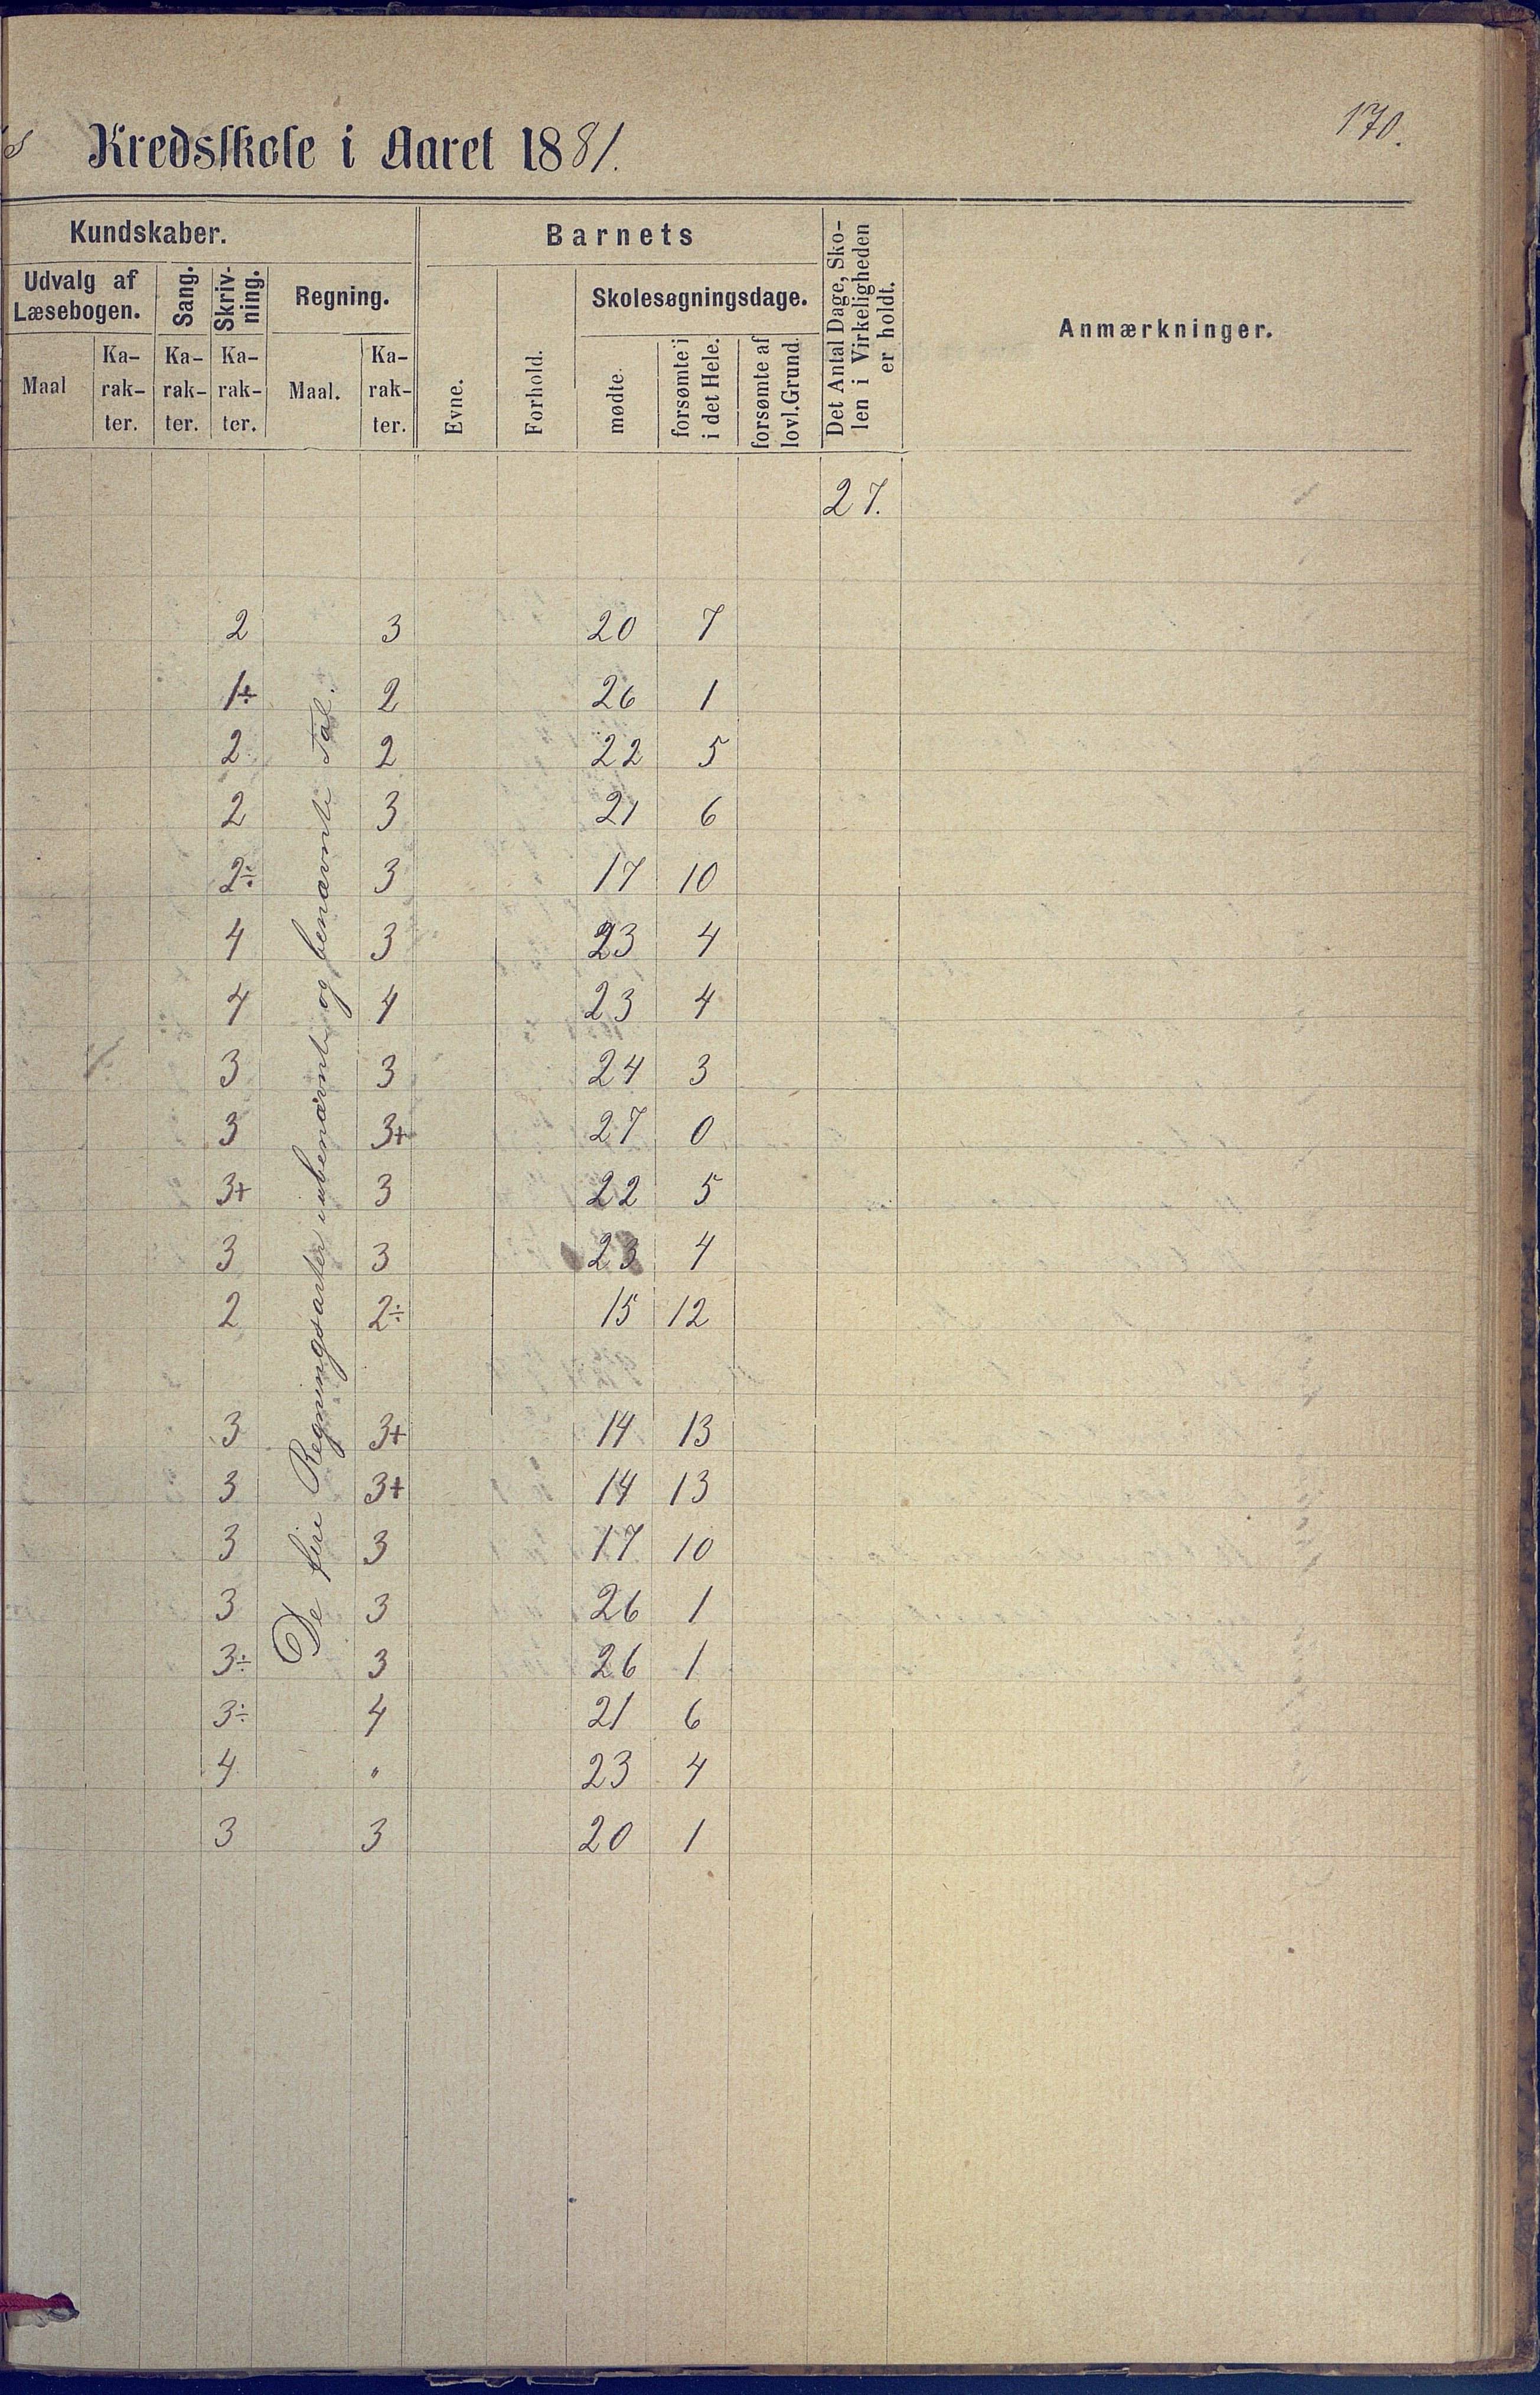 170.
s Kredsskole i Aaret 1881.
Kundskaber.
Barnets
Det Antal Dage, Sko-
len i Virkeligheden
er holdt.
Anmærkninger.
Udvalg af
Læsebogen.
Sang.
Skriv-
ning.
Regning.
Evne.
Forhold.
Skolesøgningsdage.
Maal
Ka-
rak-
ter.
Ka-
rak-
ter.
Ka-
rak-
ter.
Maal.
Ka-
rak-
ter.
mødte.
forsømte i
i det Hele.
forsømte af
lovl. Grund.
27.
De fire Regningsarter i ubenævnte og benævnte Tal.
2 3 20 7
1÷ 2 26 1
2 2 22 5
2 3 21 6
2÷ 3 17 10
4 3 23 4
4 4 23 4
3 3 24 3
3 3+ 27 0
3+ 3 22 5
3 3 23 4
2 2÷ 15 12
3 3+ 14 13
3 3+ 14 13
3 3 17 10
3 3 26 1
3÷ 3 26 1
3÷ 4 21 6
4 " 23 4
3 3 20 1